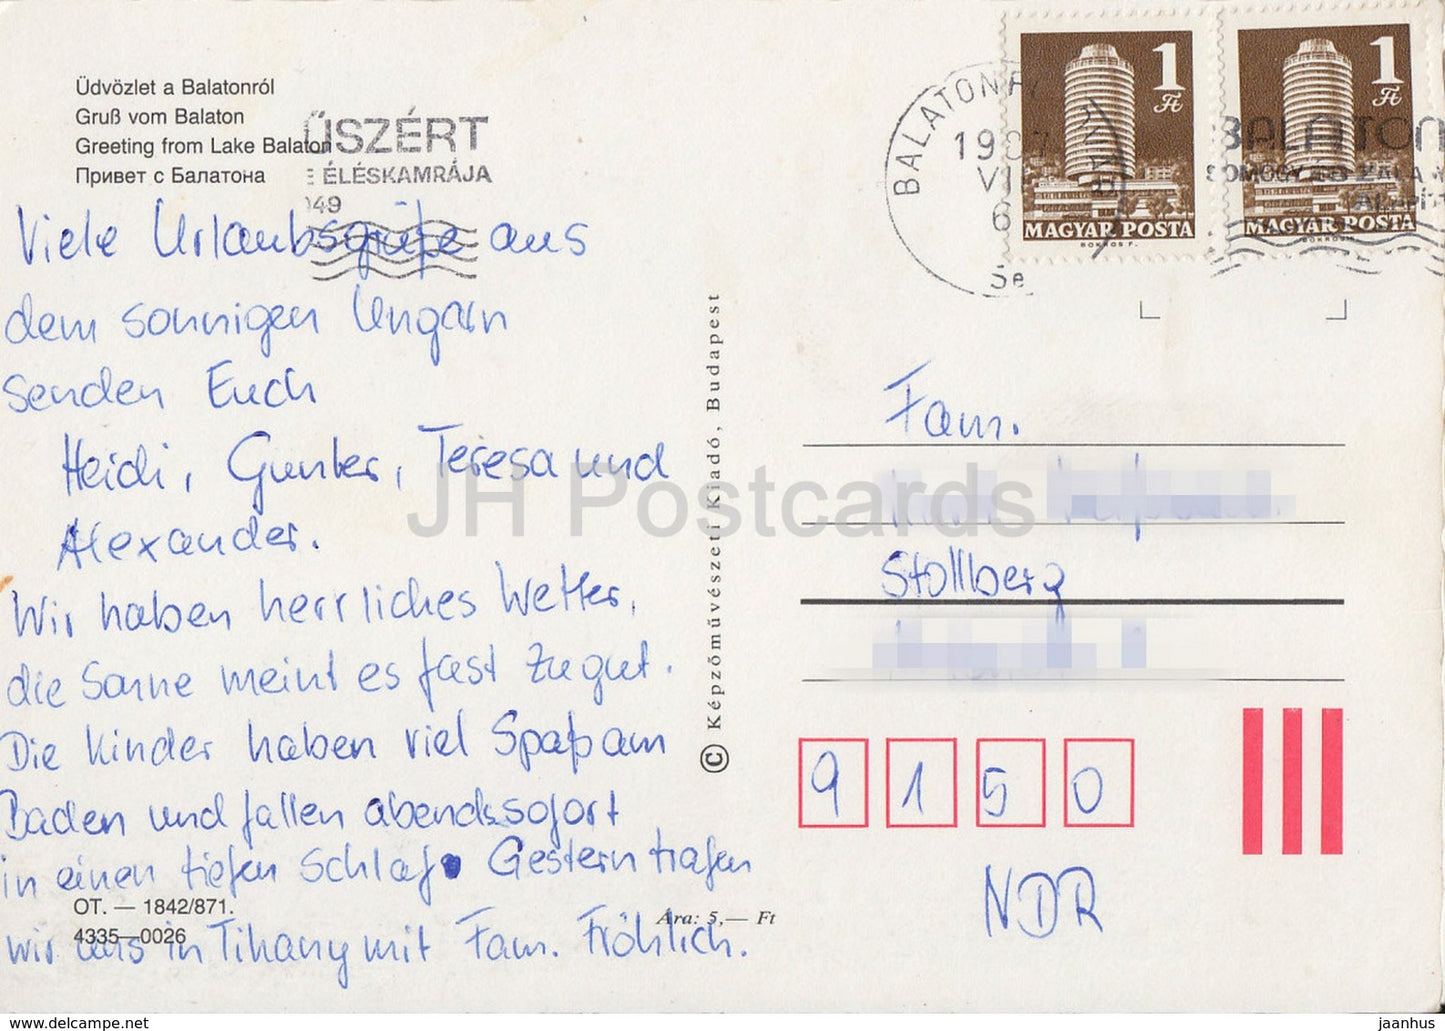 Üdvözlet a Balatonról
Gruß vom Balaton
Greeting from Lake Balaton
Привет с Балатона
ŰSZÉRT
ÉLÉSKAMRÁJA
049
Viele Urlaubsgrüße aus
dem sonnigen Ungarn
senden Euch
Heidi, Gunter, Teresa und
Alexander.
Wir haben herrliches Wetter,
die Sonne meint es fast zu gut.
Die Kinder haben viel Spaß am
Baden und fallen abends sofort
in einen tiefen Schlaf. Gestern trafen
wir uns in Tihany mit Fam. Fröhlich.
OT. — 1842/871.
4335—0026
Ára: 5,— Ft
© Képzőművészeti Kiadó, Budapest
JH Postcards
BALATON
1987
VII
6
1 Ft
MAGYAR POSTA
BOKROS F.
1 Ft
MAGYAR POSTA
BOKROS F.
BALATON
SOMOGY ÉS ZALA
Fam.
Stollberg
9150
NDR
https://jhpostcards.com
jaanhus